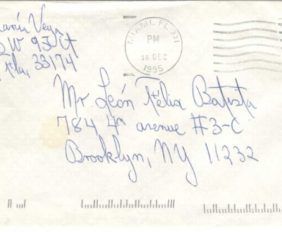 Vega
SW 93 Ct
Fla, 33174
MIAMI, FL 331
PM
16 DEC
1995
Mr León Félix Batista
784, 4n avenue #3-C
Brooklyn, NY 11232